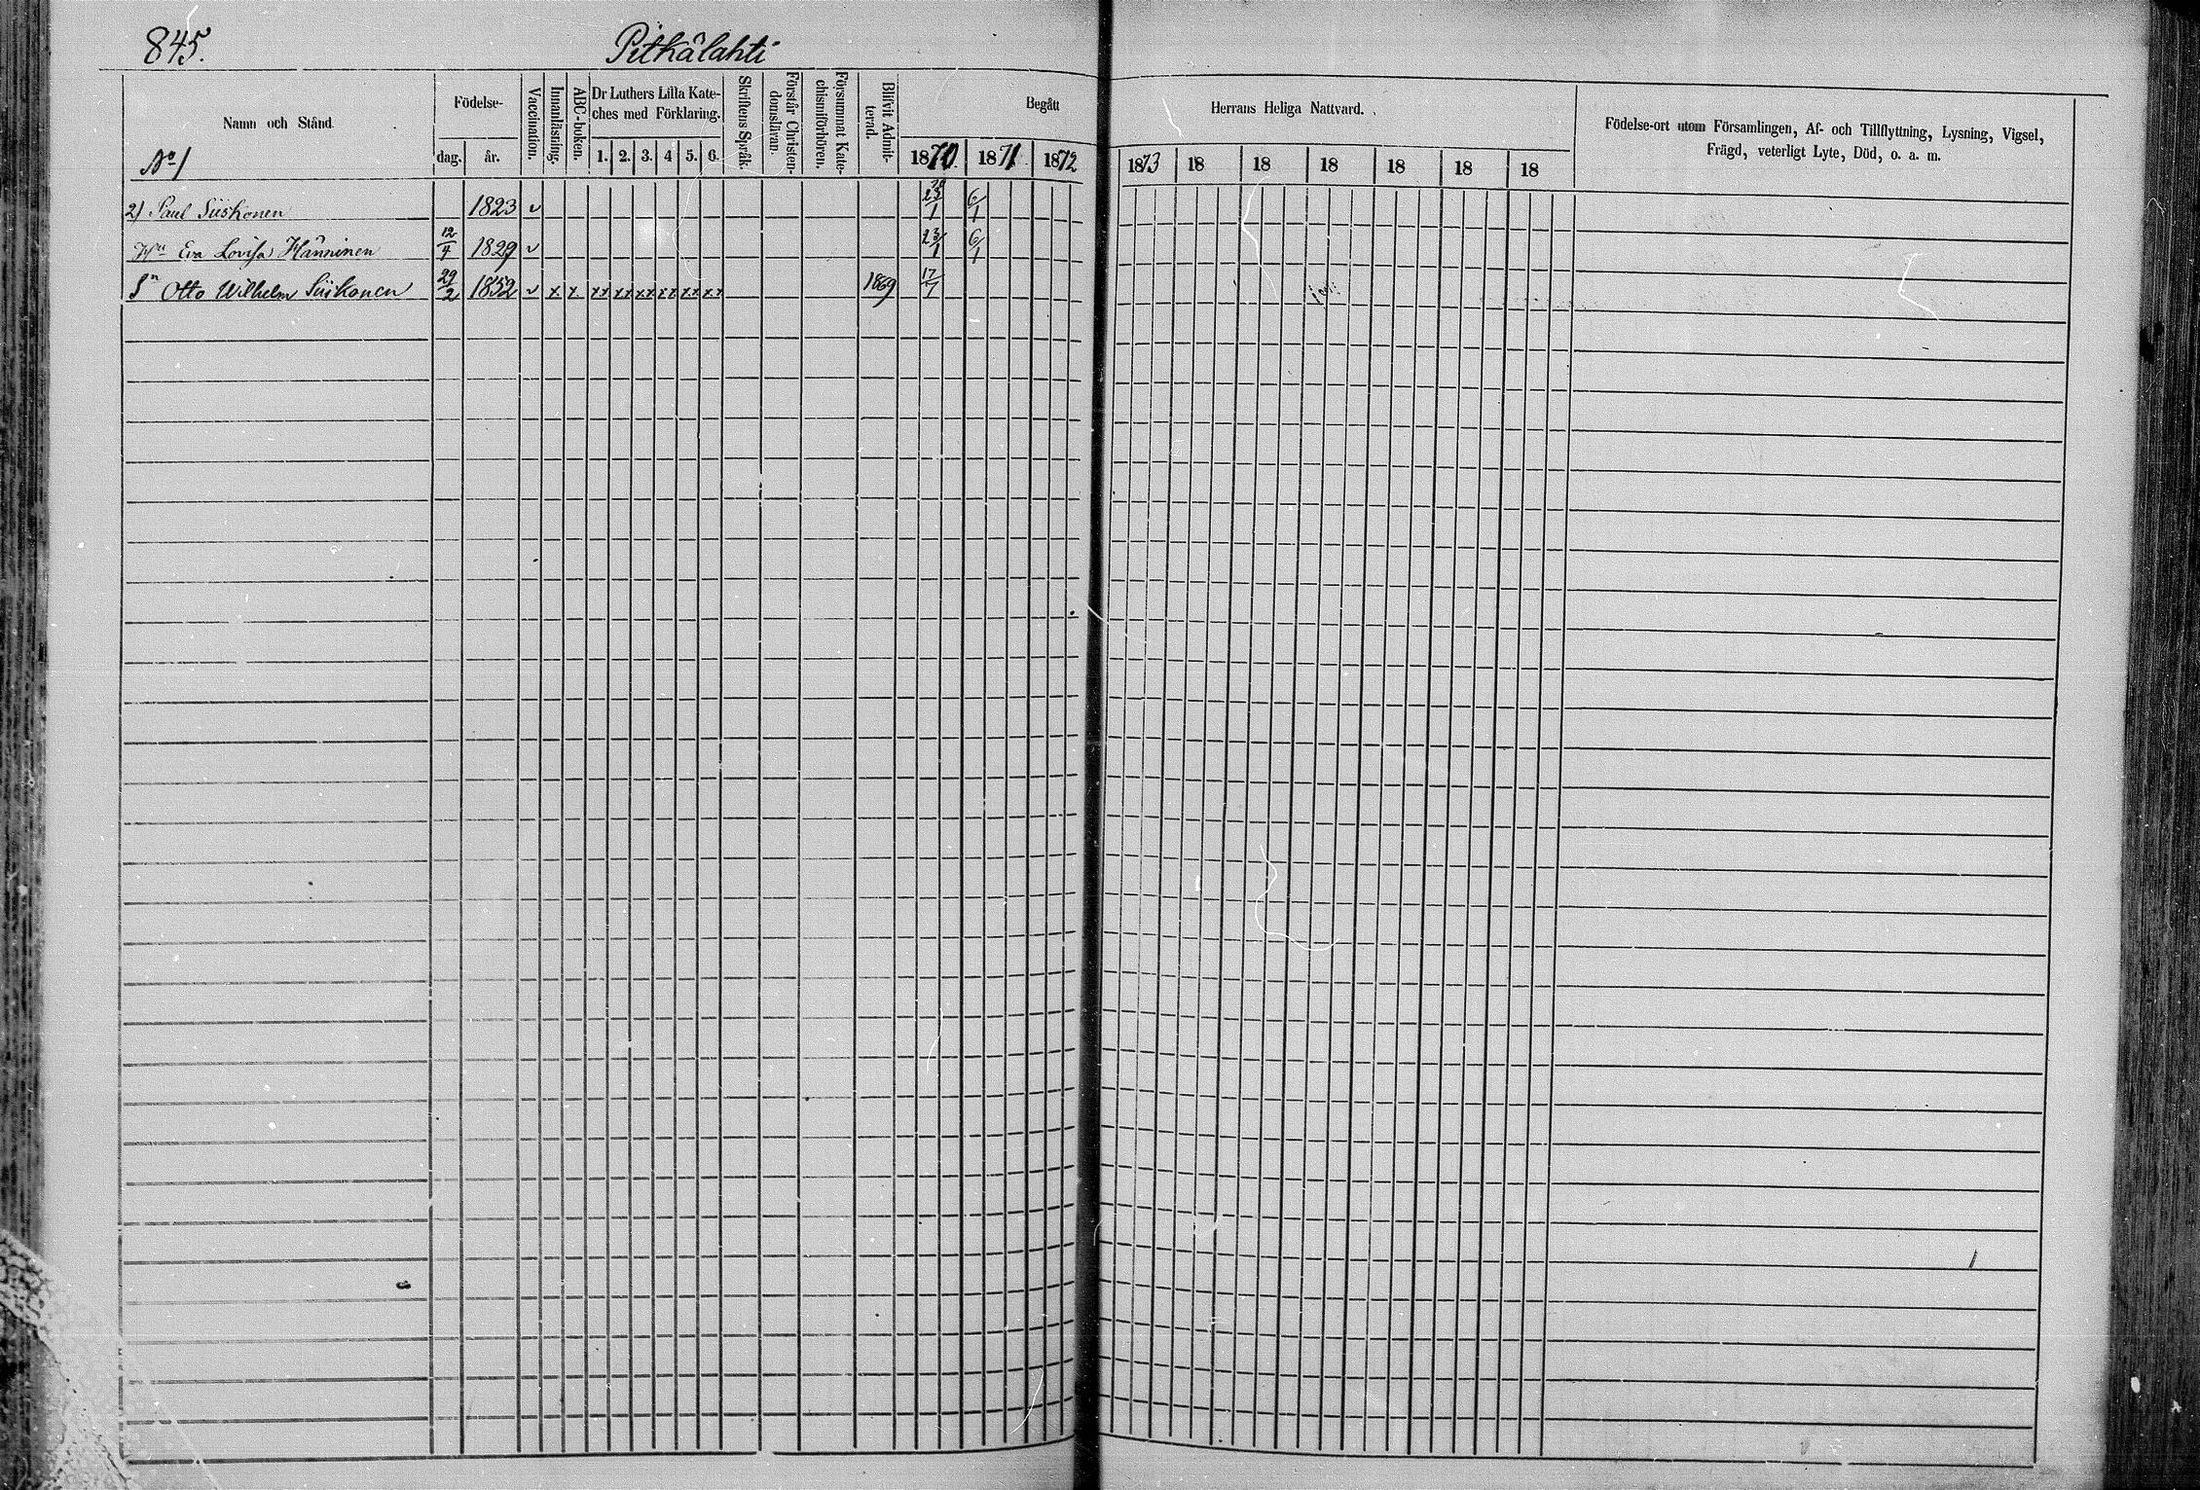 845.
Pitkälahti
Namn och Stånd.
No 1
Födelse-
dag.
år.
Vaccination.
Innanläsning.
ABC-boken.
Dr Luthers Lilla Kate-
ches med Förklaring.
1. 2. 3. 4 5. 6.
Skriftens Språk.
Förstår Christen-
domsläran.
Försummat Kate-
chismiförhören.
Blifvit Admit-
terad.
Begått
Herrans Heliga Nattvard.
1870. 1871 1872 1873 18 18 18 18 18 18
Födelse-ort utom Församlingen, Af- och Tillflyttning, Lysning, Vigsel,
Frägd, veterligt Lyte, Död, o. a. m.
2) Paul Siiskonen 1823 v 6/1
Hu Eva Lovisa Hänninen 12/4 1829 v 23/1 6/1
Sn Otto Wilhelm Siiskonen 29/2 1852 v x x xx xx xx xx xx xx 1869 17/7